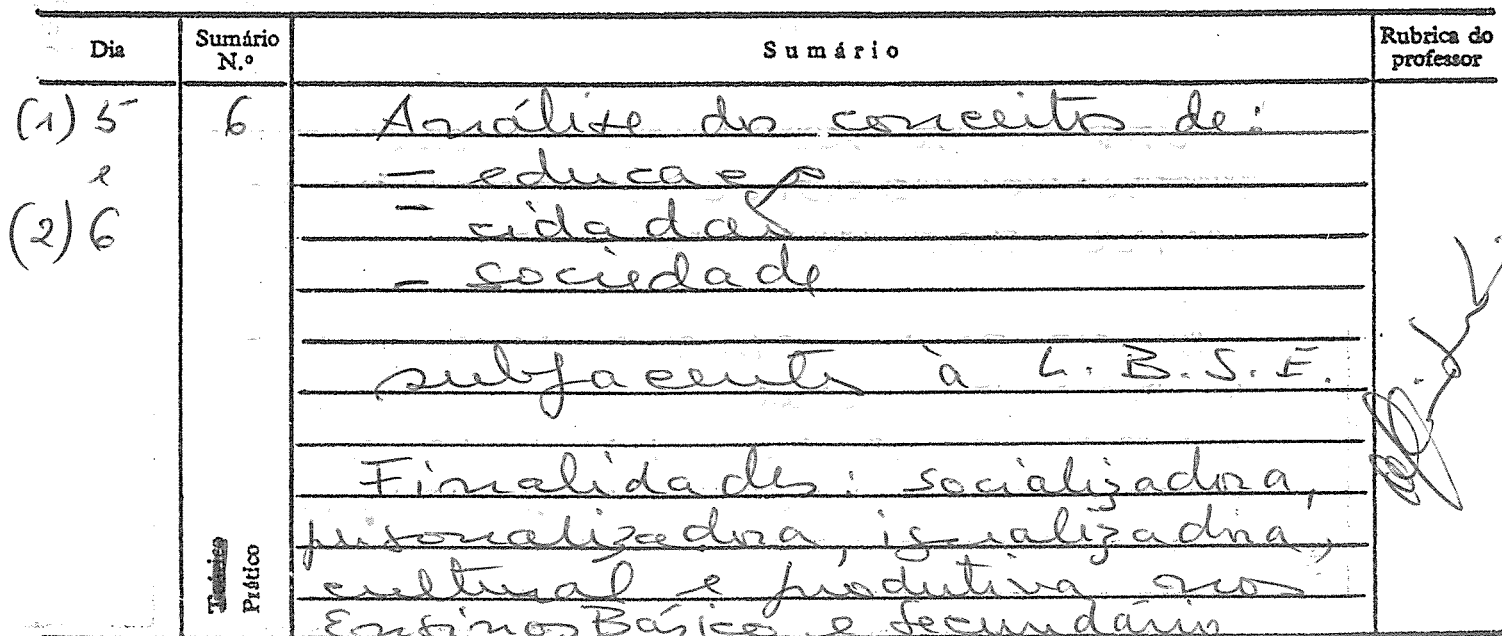 Dia Sumário N.º Sumário Rubrica do professor
(1) 5 6 Análise dos conceitos de:
e - educação
(2) 6 - cidadão
- sociedade
subjacentes à L.B.S.E.
Finalidades: socializadora,
personalizadora, igualizadora,
cultural e produtiva nos
Ensinos Básico e Secundário
Teórico
Prático